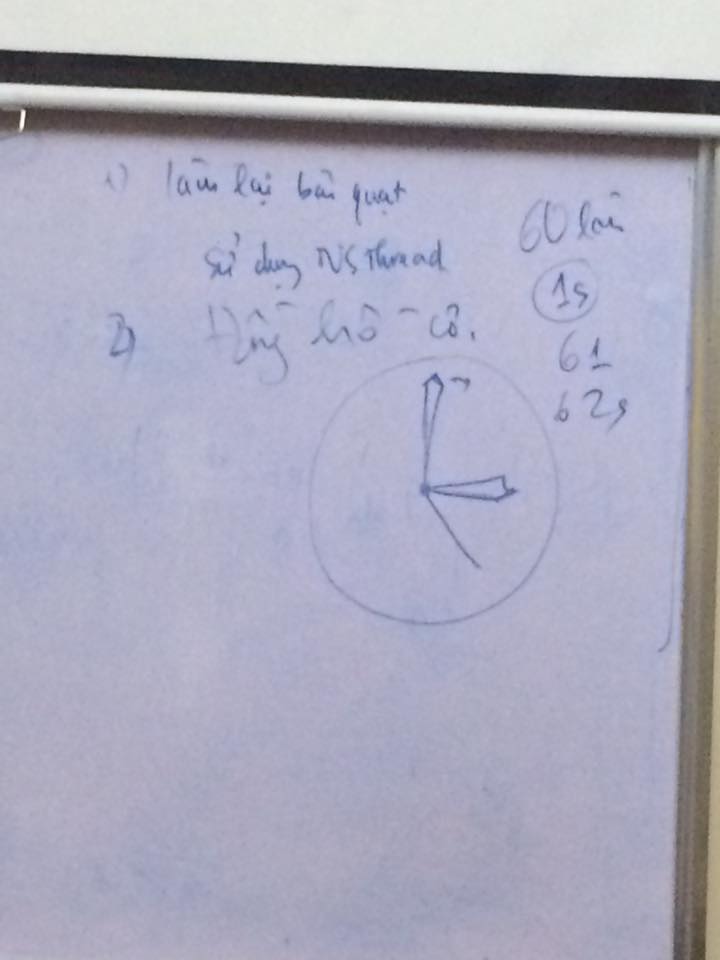 1) làm lại bài quạt
sử dụng NSThread
2) Đồng hồ cơ.
60 lần
1s
61
62s